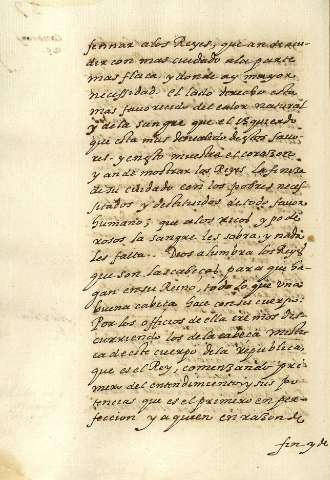 señar a los Reyes, que an de acu
dir con mas cuidado a la parte
mas flaca, y donde ay mayor
necessidad. El lado derecho está
mas favorecido del calor natural
y de la sangre que el izquierdo
que esta mas de estos favo
res. y en esto muestra el corazon
y an de mostrar los Reyes la fineza
de su cuidado con los pobres necess
sitados y destituidos de todo favor
humano; que a los ricos y pode
rosos la sangre les sobra, y nada
les falta. Dios alumbra los Reyes
que son las cabeças, para que ha
gan en su Reino, todo lo que una
buena cabeça hace con su cuerpo.
Por los officios de ella iremos dis
curriendo los de la cabeça mistica
ca de este cuerpo de la republica,
que es el Rey, començando pri
mero del entendimiento y sus po
tencias que es el primero en per
feccion y a quien en razon de
fin y de